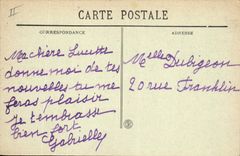 II
CARTE POSTALE
CORRESPONDANCE
ADRESSE
Ma chère
donne moi de tes
nouvelles tu me
feras plaisir
je t'embrasse
bien fort
Gabrielle
Melle Dubigeon
20 rue Franklin